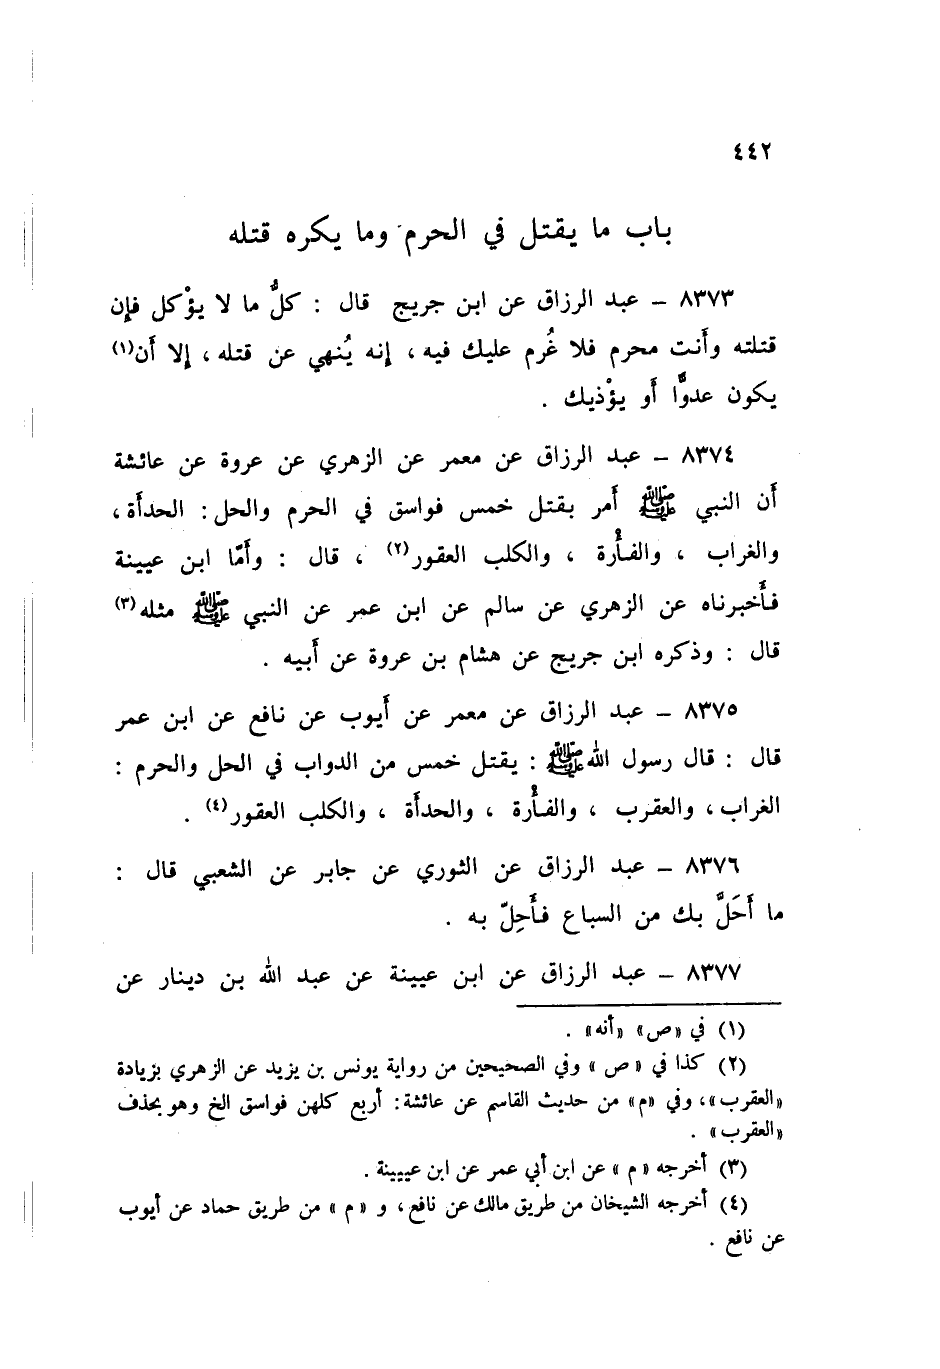 ٤٤٢
باب ما يقتل في الحرم وما يكره قتله
٨٣٧٣ – عبد الرزاق عن ابن جريج قال : كلُّ ما لا يؤْكل فإِن
قتلته وأَنت محرم فلا غُرم عليك فيه ، إنه يُنهي عن قتله ، إِلا أَن(١)
يكون عدوًّا أَو يؤْذيك .
٨٣٧٤ – عبد الرزاق عن معمر عن الزهري عن عروة عن عائشة
أَن النبي ﷺ أَمر بقتل خمس فواسق في الحرم والحل : الحدأَة ،
والغراب ، والفأْرة ، والكلب العقور(٢) ، قال : وأَمّا ابن عيينة
فأَخبرناه عن الزهري عن سالم عن ابن عمر عن النبي ﷺ مثله(٣)
قال : وذكره ابن جريج عن هشام بن عروة عن أَبيه .
٨٣٧٥ – عبد الرزاق عن معمر عن أَيوب عن نافع عن ابن عمر
قال : قال رسول الله ﷺ : يقتل خمس من الدواب في الحل والحرم :
الغراب ، والعقرب ، والفأْرة ، والحدأَة ، والكلب العقور(٤) .
٨٣٧٦ – عبد الرزاق عن الثوري عن جابر عن الشعبي قال :
ما أَحَلَّ بك من السباع فأَحِلّ به .
٨٣٧٧ – عبد الرزاق عن ابن عيينة عن عبد الله بن دينار عن
(١) في «ص» «أنه» .
(٢) كذا في «ص» وفي الصحيحين من رواية يونس بن يزيد عن الزهري بزيادة
«العقرب»، وفي «م» من حديث القاسم عن عائشة: أربع كلهن فواسق الخ وهو بحذف
«العقرب» .
(٣) أخرجه «م» عن ابن أبي عمر عن ابن عييينة .
(٤) أخرجه الشيخان من طريق مالك عن نافع، و «م» من طريق حماد عن أيوب
عن نافع .